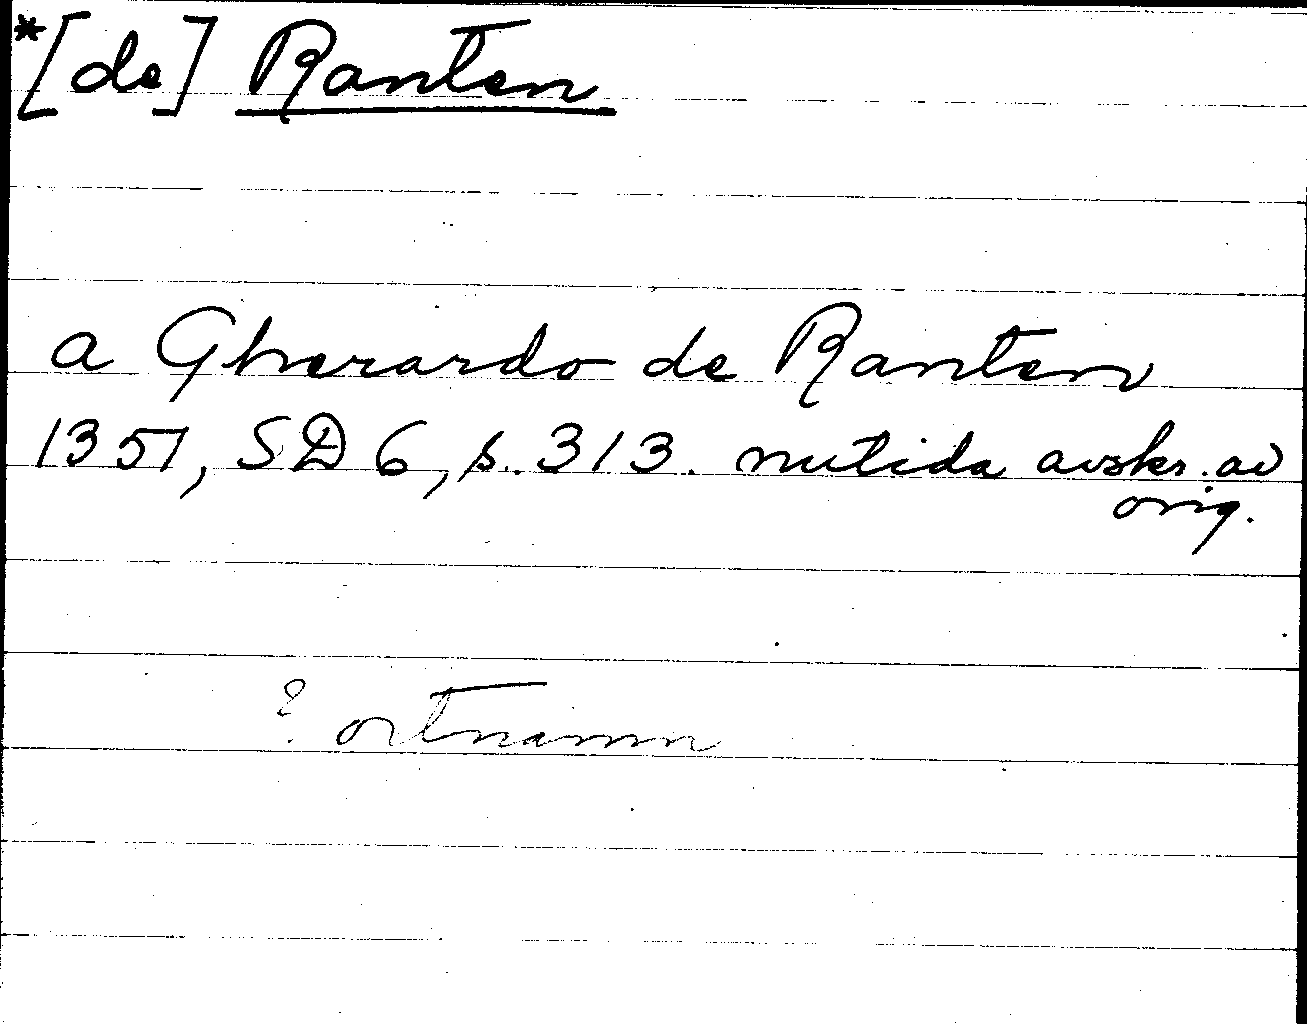 *[de] Ranten
a Gherardo de Ranten
1351, SD 6, s. 313. nutida avskr. av
orig.
? ortnamn